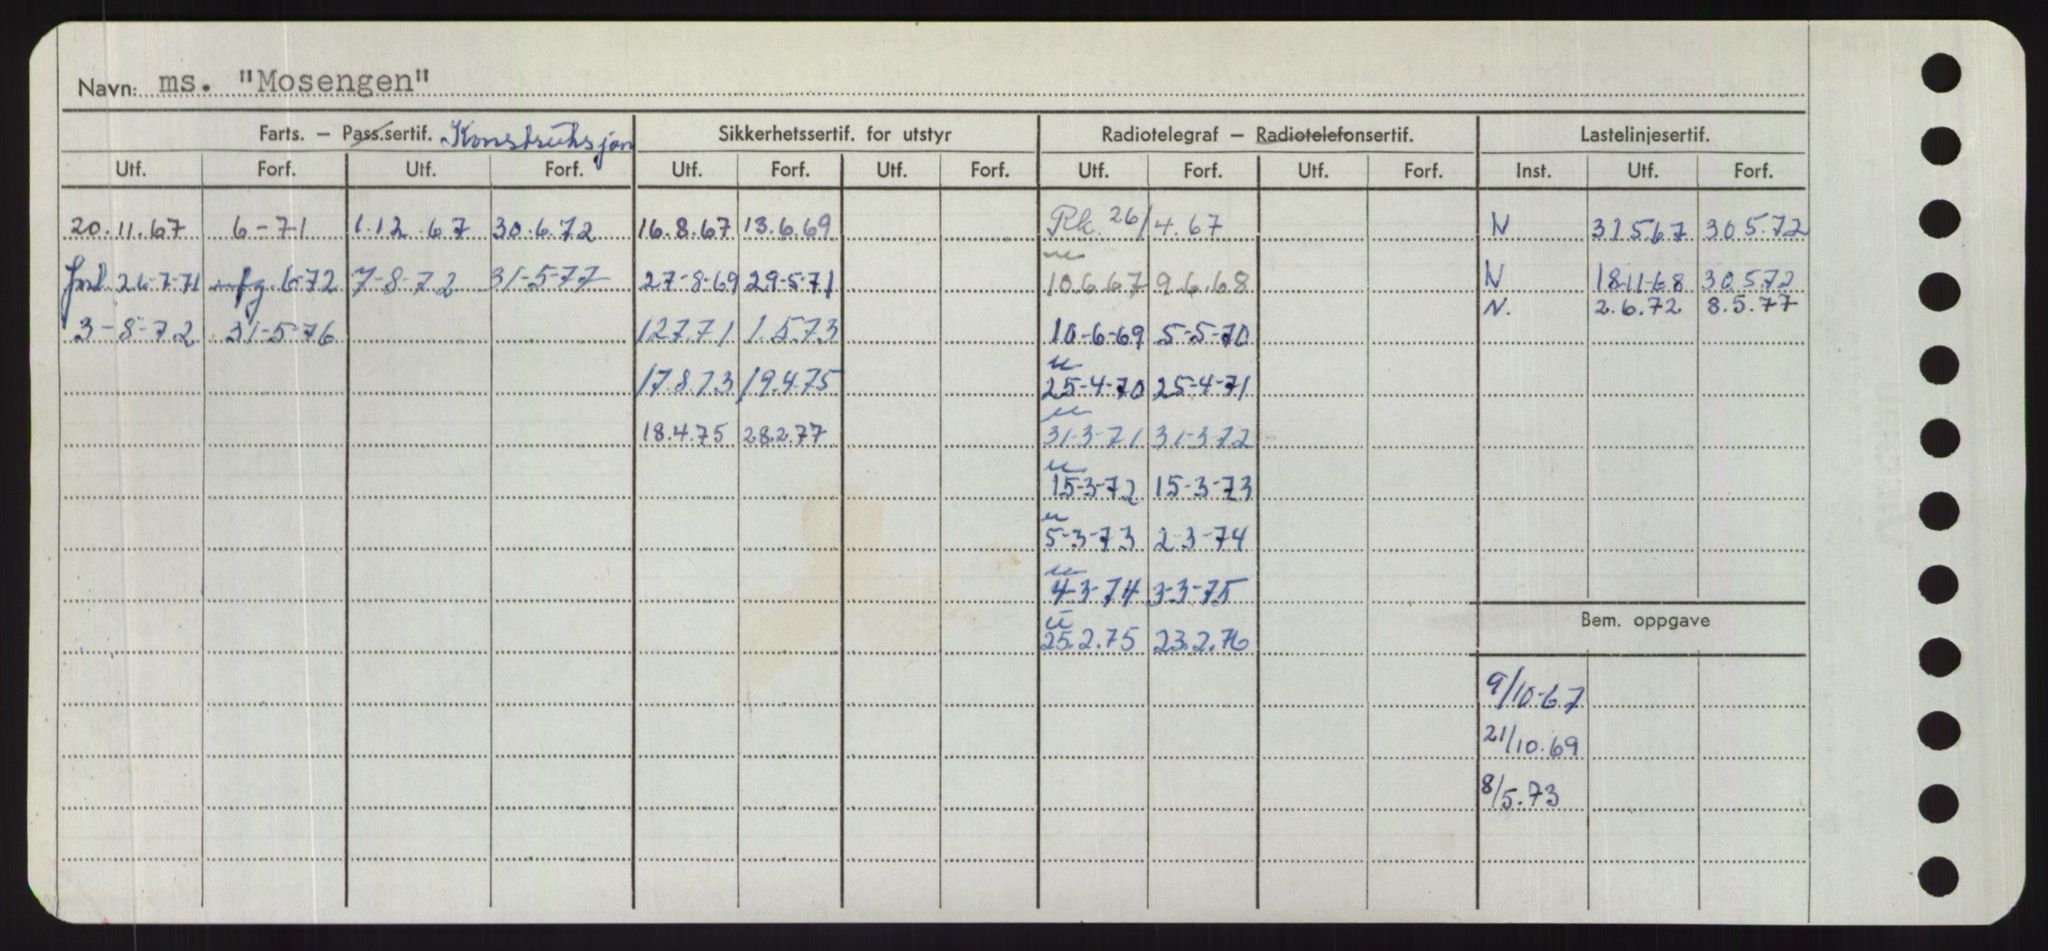 Navn: ms. "Mosengen"
Farts. – Pass.sertif. Konstruksjon Sikkerhetssertif. for utstyr Radiotelegraf – Radiotelefonsertif. Lastelinjesertif.
Utf. Forf. Utf. Forf. Utf. Forf. Utf. Forf. Utf. Forf. Utf. Forf. Inst. Utf. Forf.
20.11.67 6-71 1.12.67 30.6.72 16.8.67 13.6.69 Rk. 26/4.67 N 31567 30572
26-7-71 6-72 7-8-72 31-5-77 27-8-69 29-5-71 10.6.67 9.6.68 N 1811-68 30572
N. 2.6.72 8.5.77
3-8-72 31-5-76 12771 1.573 10-6-69 5-5-70
17.8.73 19.4.75 25-4-70 25-4-71
18.4.75 28.2.77 31-3-71 31-3-72
15-3-72 15-3-73
5-3-73 2-3-74
4-3-74 3-3-75
Bem. oppgave
25.2.75 23.2.76
9/10-67
21/10.69
8/5.73